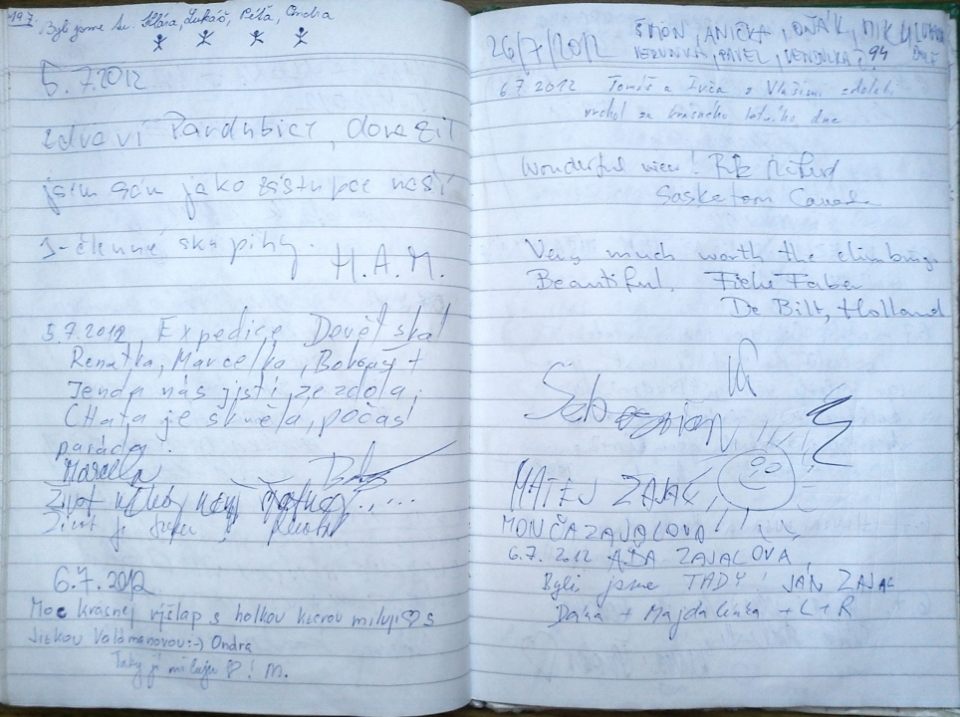 19.7.
Byli jsme tu. Klára, Lukáš, Péťa, Ondra
5.7.2012
zdraví Pardubice, dorazil
jsem sám jako zástupce naší
3-členné skupiny.
H.A.M.
5.7.2012 Expedice Devět skal
Renatka, Marcelka,
Jenda nás jistí ze zdola,
CHata je skvělá, počasí
paráda!
Marcela
Život někdy není
Život je
6.7.2012
Moc krásnej výšlap s holkou kterou miluji ♡ s
Jitkou :-) Ondra
Taky ji miluju ♡! M.
26/7/2012 ŠIMON, ANIČKA,
VERUNKA, PAVEL, VENDULKA, 94
6.7.2012 Tomáš a Ivča z Vlašimi zdolali
vrchol za krásného letního dne
Wonderful view!
Saskatoon Canada
Very much worth the climbing.
Beautiful. Fieke Faber
De Bilt, Holland
MATEJ ZAJAC
MONČA ZAJACOVA!
6.7.2012 ADA ZAJACOVA,
Byli jsme TADY! JAN ZAJAC
Dana + Majdalenka + L + R